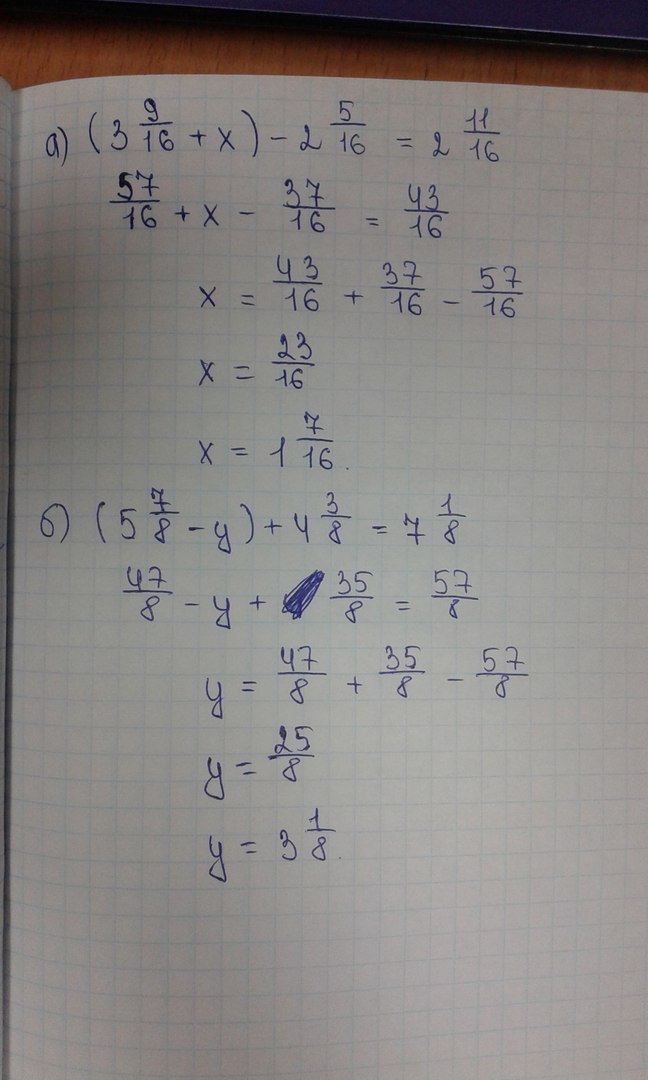 а) (3 9/16 + x) - 2 5/16 = 2 11/16
57/16 + x - 37/16 = 43/16
x = 43/16 + 37/16 - 57/16
x = 23/16
x = 1 7/16.
б) (5 7/8 - y) + 4 3/8 = 7 1/8
47/8 - y + 35/8 = 57/8
y = 47/8 + 35/8 - 57/8
y = 25/8
y = 3 1/8.